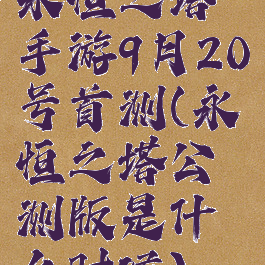 永恒之塔
手游9月20
号首测(永
恒之塔公
测版是什
么时候)